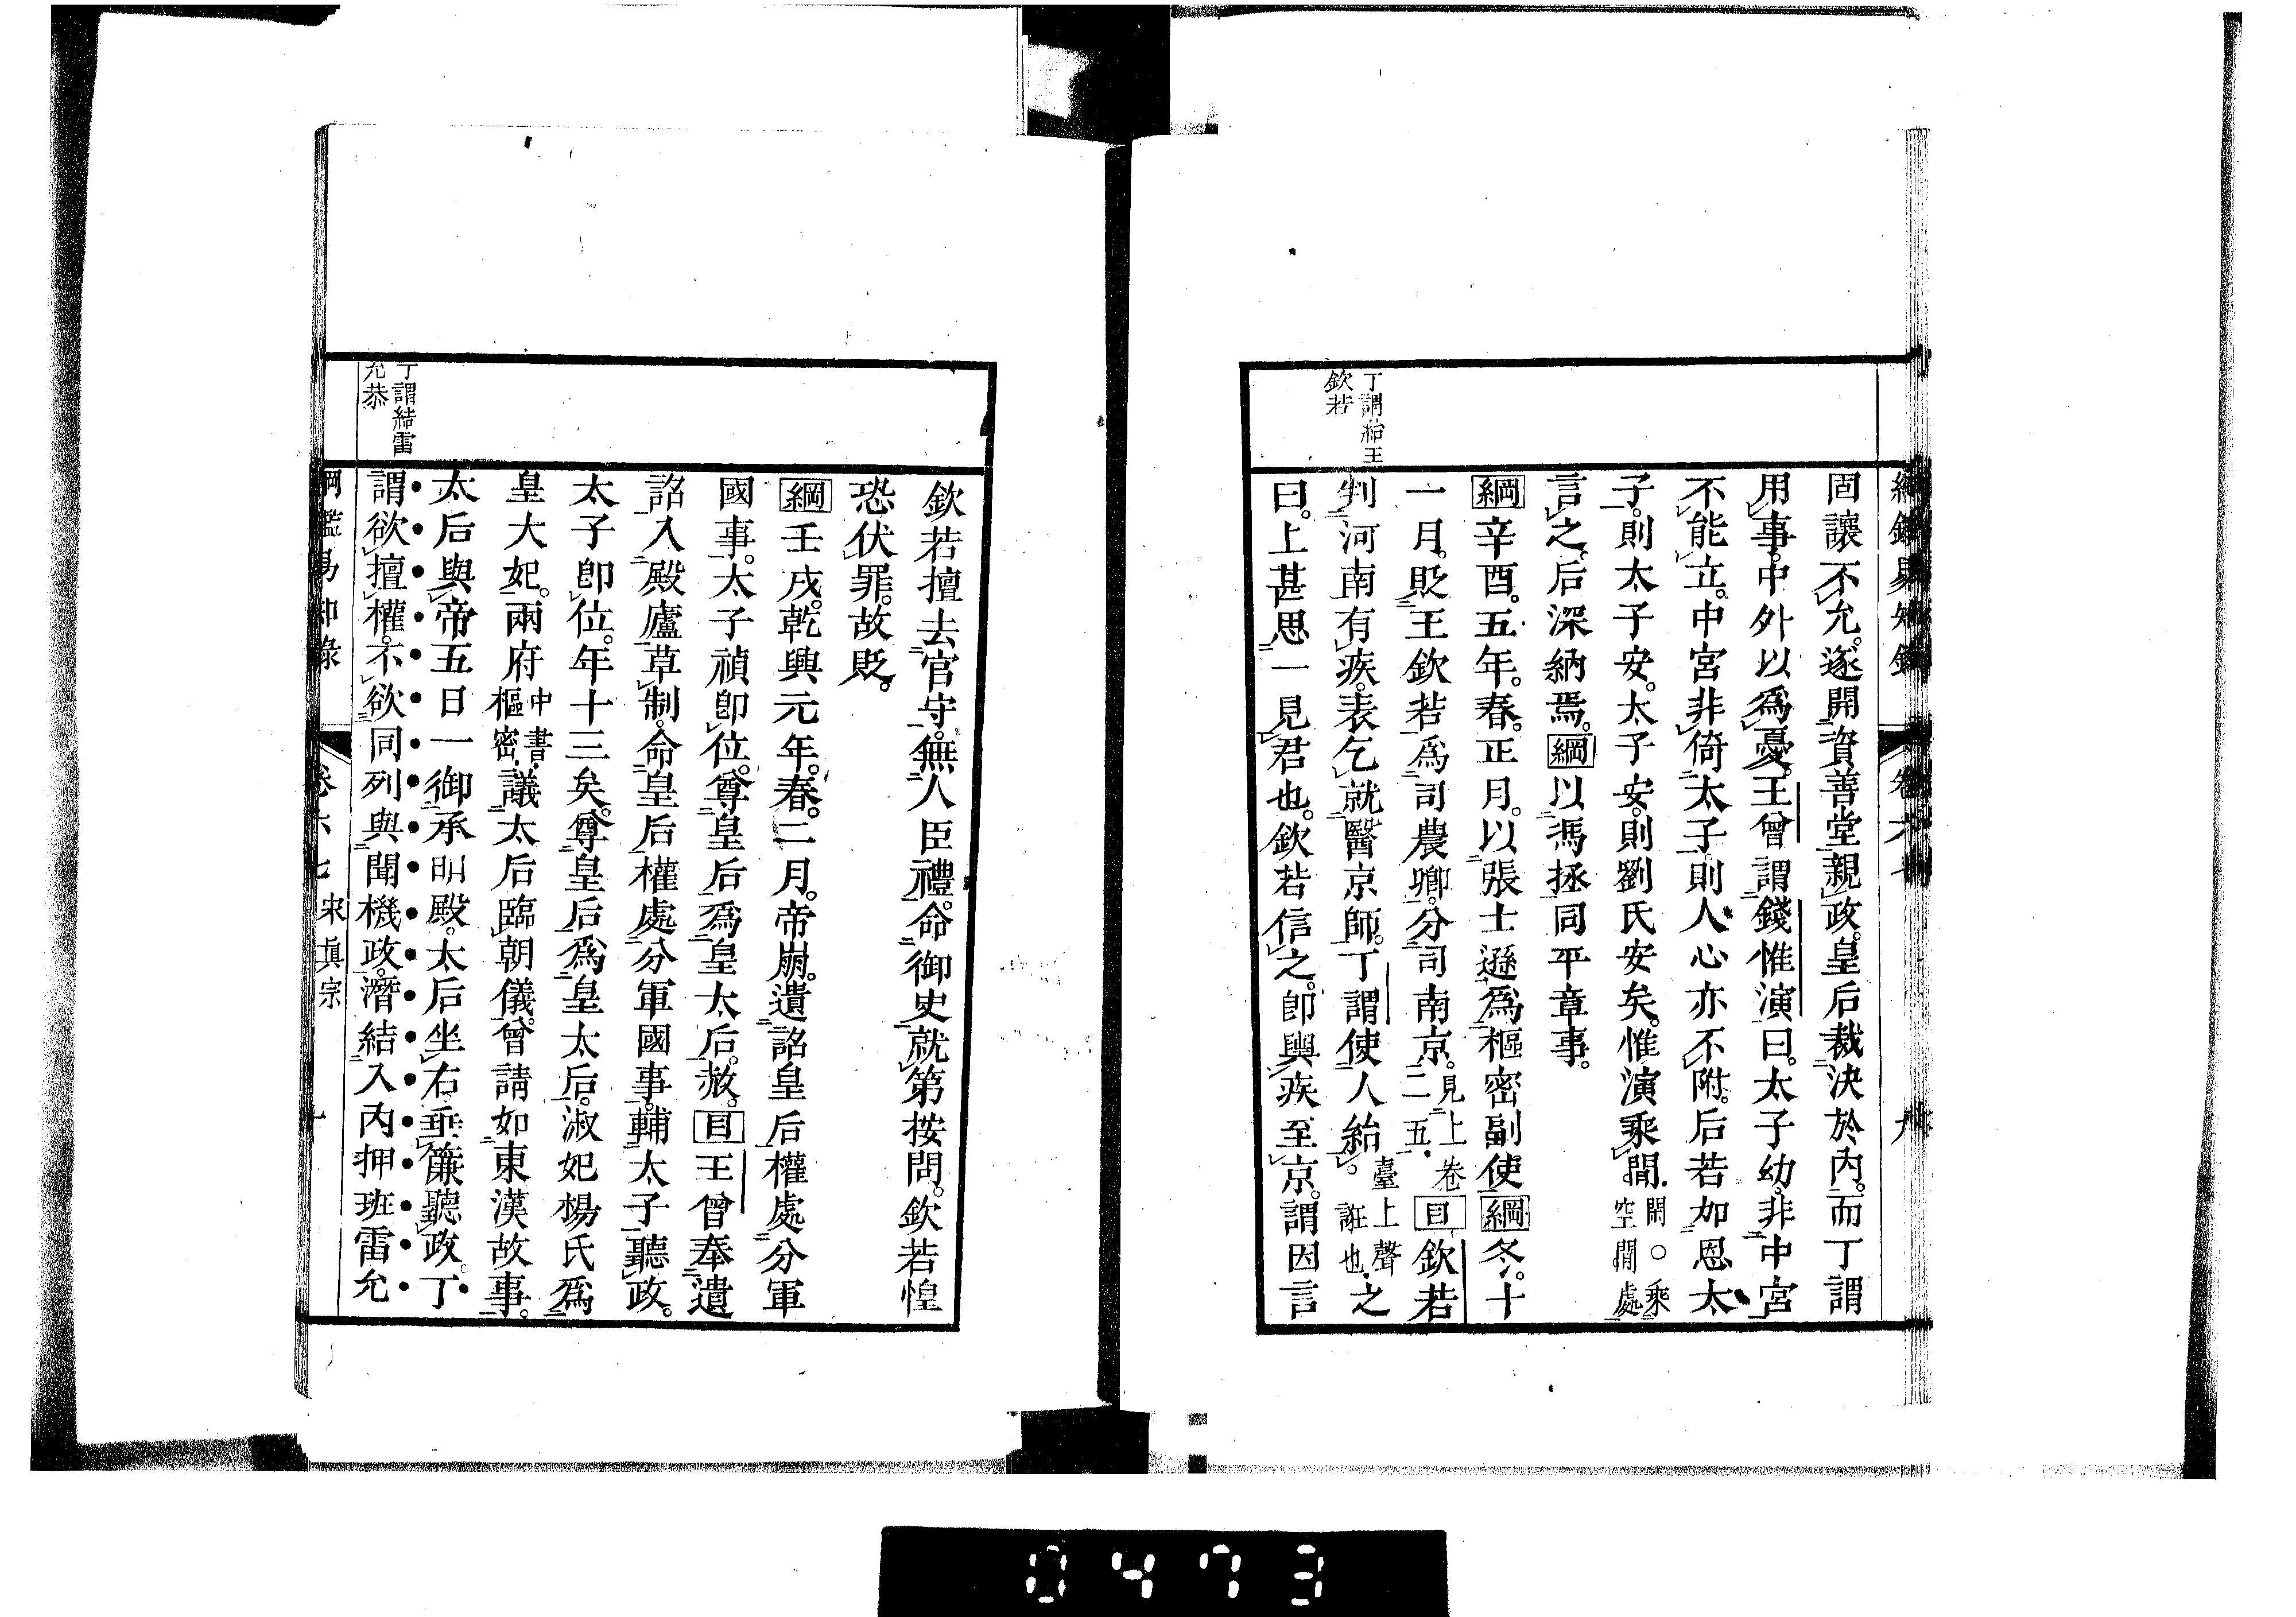 綱鑑易知錄 卷六七 九
丁謂紿王
欽若
固讓不允。遂開資善堂親政。皇后裁決於內。而丁謂
用事。中外以爲憂。王曾謂錢惟演曰。太子幼。非中宮
不能立。中宮非倚太子。則人心亦不附。后若加恩太
子。則太子安。太子安。則劉氏安矣。惟演乘閒。閒。○乘空閒處
言之。后深納焉。綱以馮拯同平章事。
綱辛酉。五年。春。正月。以張士遜爲樞密副使。綱冬。十
一月。貶王欽若爲司農卿。分司南京。見上卷二五。目欽若
判河南有疾。表乞就醫京師。丁謂使人紿。臺上聲誑也。之
曰。上甚思一見君也。欽若信之。卽輿疾至京。謂因言
欽若擅去官守。無人臣禮。命御史就第按問。欽若惶
恐伏罪。故貶。
綱壬戌。乾興元年。春。二月。帝崩。遺詔皇后權處分軍
國事。太子禎卽位。尊皇后爲皇太后。赦。目王曾奉遺
詔入殿廬草制。命皇后權處分軍國事。輔太子聽政。
太子卽位。年十三矣。尊皇后爲皇太后。淑妃楊氏爲
皇大妃。兩府中書樞密。議太后臨朝儀。曾請如東漢故事。
太后與帝五日一御承明殿。太后坐右垂簾聽政。丁
謂欲擅權。不欲同列與聞機政。潛結入內押班雷允
丁謂結雷
允恭
綱鑑易知錄 卷六七 宋眞宗 十
0473